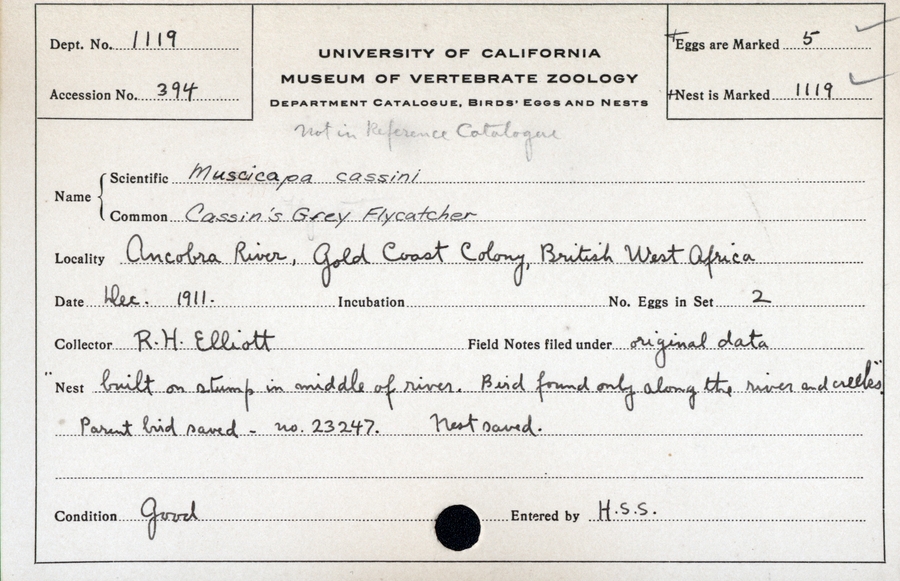 Dept. No. 1119
Accession No. 394
UNIVERSITY OF CALIFORNIA
MUSEUM OF VERTEBRATE ZOOLOGY
DEPARTMENT CATALOGUE, BIRDS' EGGS AND NESTS
Eggs are Marked 5
Nest is Marked 1119
Not in Reference Catalogue
Name
Scientific Muscicapa cassini
Common Cassin's Grey Flycatcher
Locality Ancobra River, Gold Coast Colony, British West Africa
Date Dec. 1911. Incubation No. Eggs in Set 2
Collector R.H. Elliott Field Notes filed under original data
"Nest built on stump in middle of river. Bird found only along the river and creeks."
Parent bird saved - no. 23247. Nest saved.
Condition Good Entered by H.S.S.